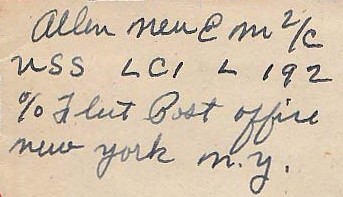 Allen New E M 2/C
USS LCI L 192
% Fleet Post office
new york n.y.